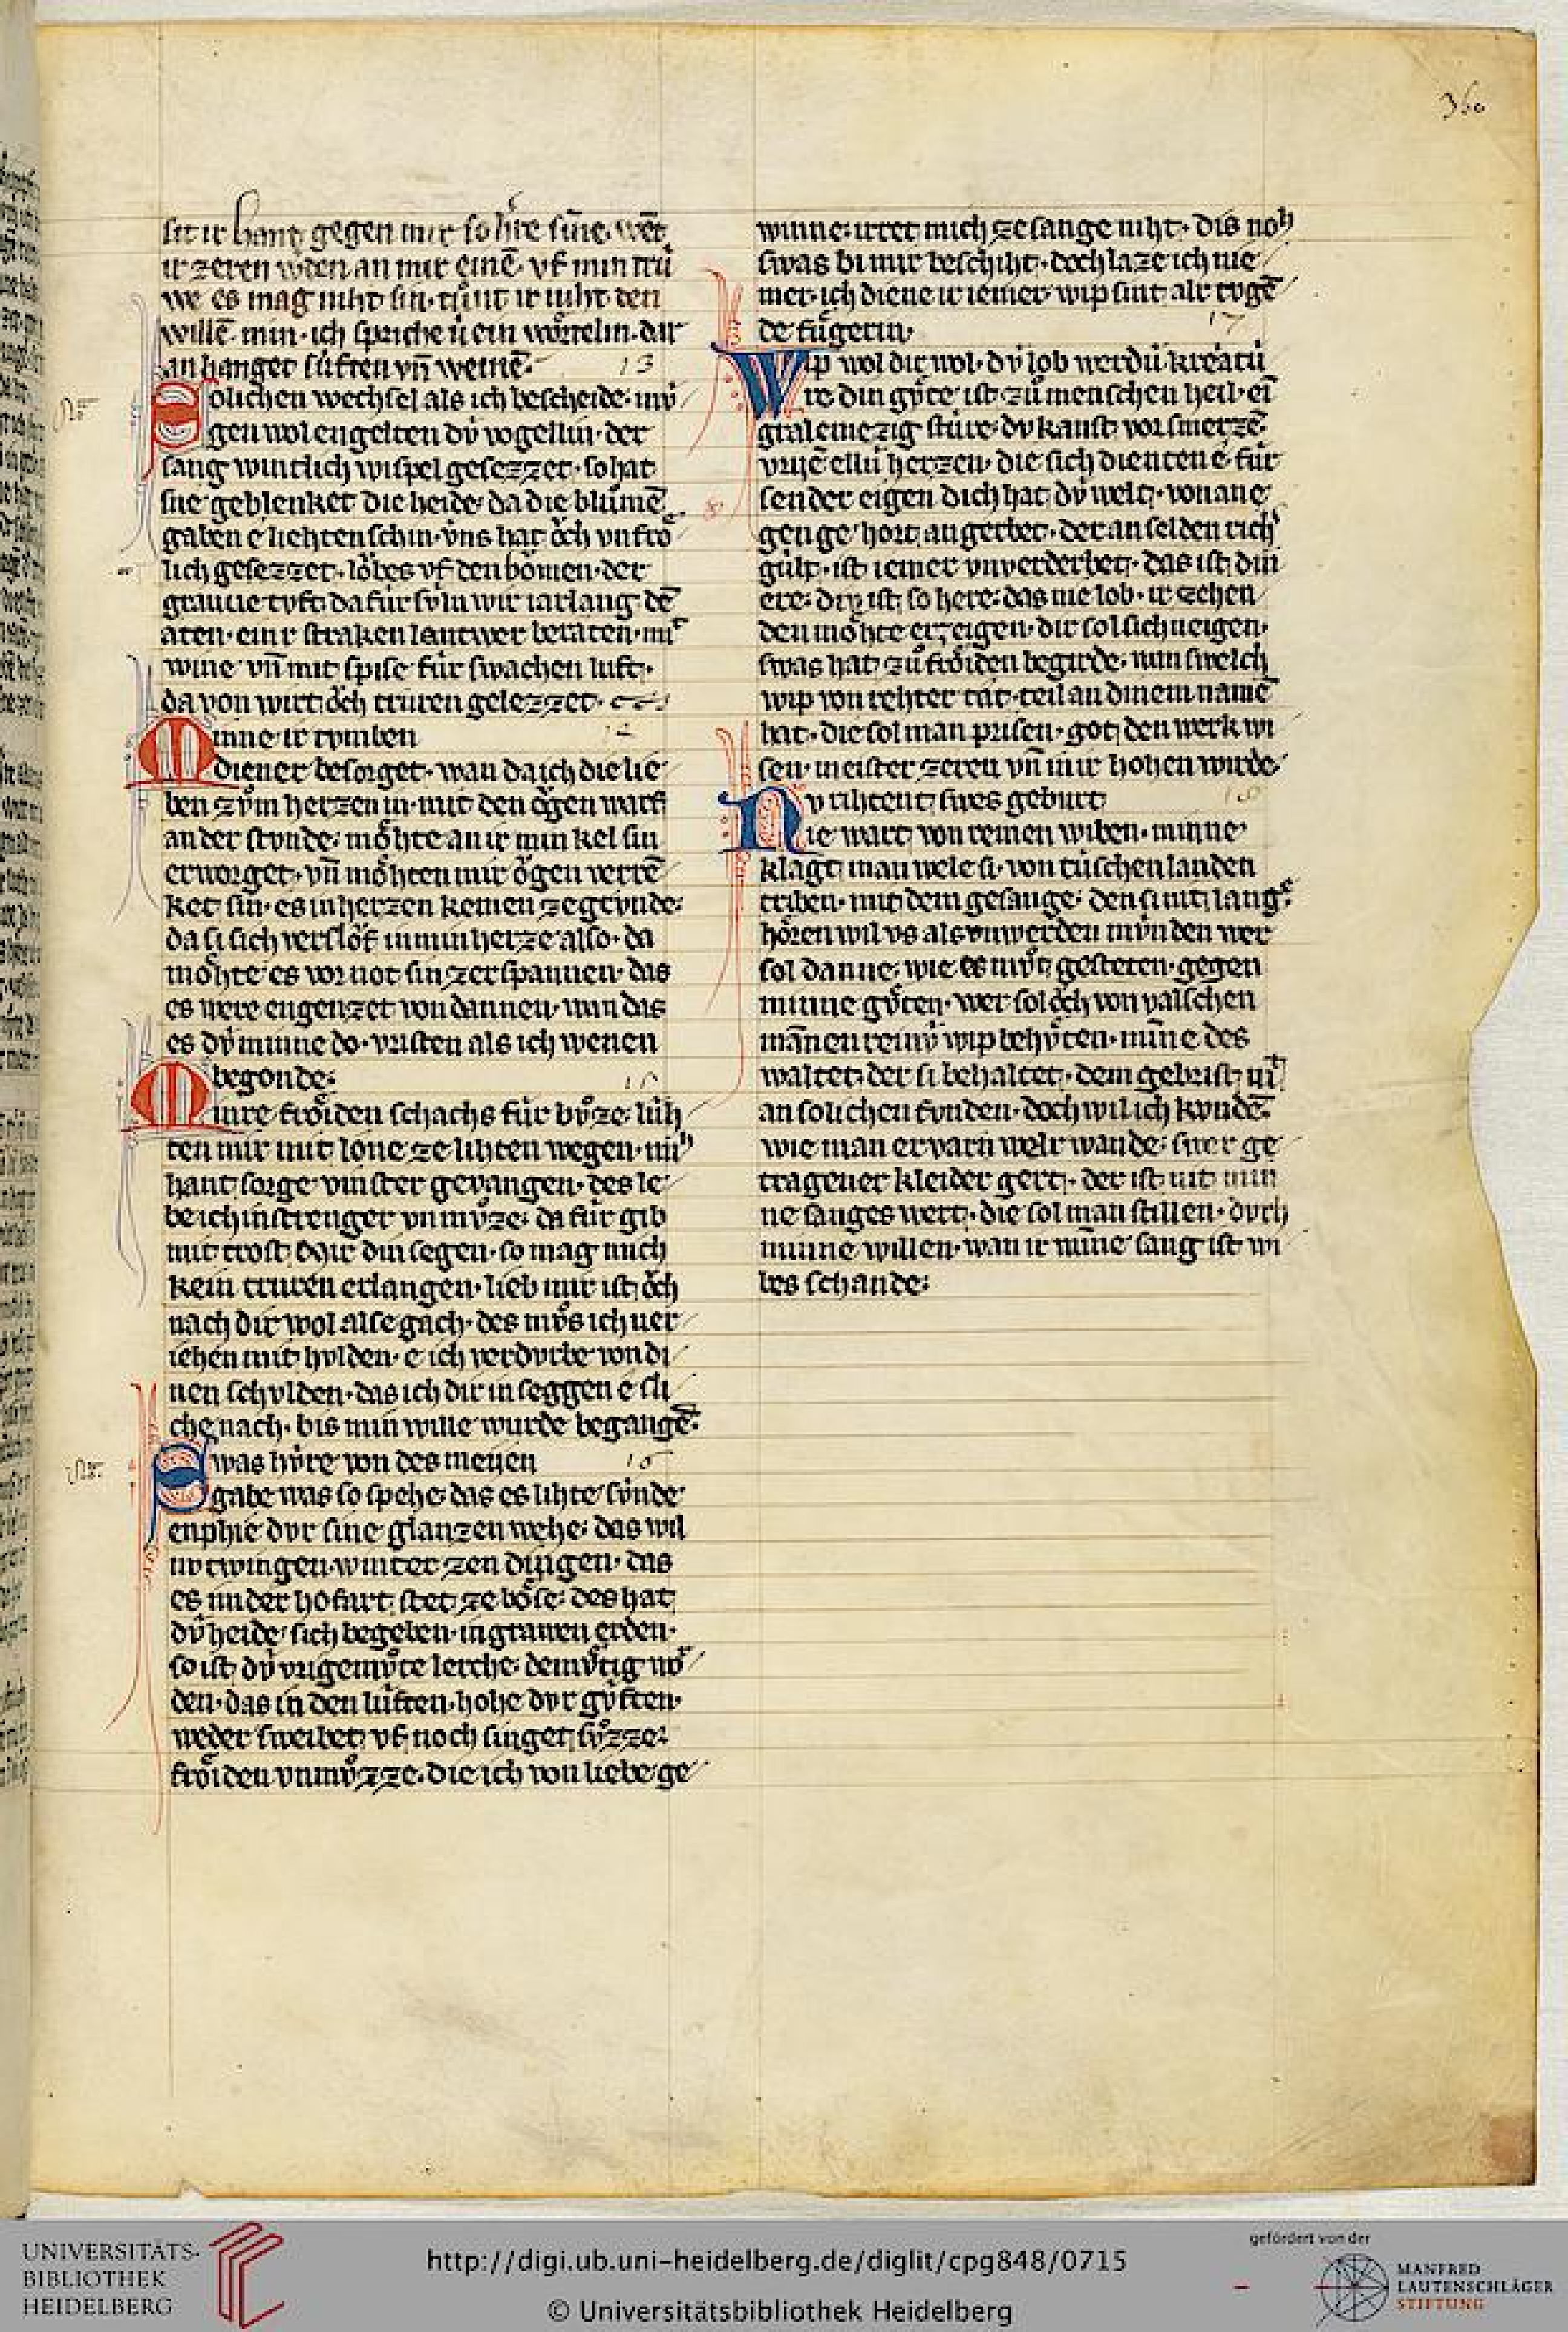 360
sit ir hant gegen mir so h're sin̄e. wēt
ir zeren wden an mir einē. vf min trů
we es mag niht sin. tůnt ir niht den
willē min. ich spriche ů ein wôrtelin. dar
an hanget sůften vn̄ weinē. 13
Solichen wechsel als ich bescheide. mů
gen wol engelten dů vogellin. der
sang wintlich wispel gesezzet. so hat
sne geblenket die heide. da die blůmē
gaben e liehten schin. vns hat ôch vnfrô
lich gesezzet. lôbes vf den bômen. der
grawe tvft da fůr sůln wir iarlang. dē
aten. einr starken lantwer beraten. mit
wine vn̄ mit spise fůr swachen luft.
da von wirt ôch truren gelezzet.
Minne ir tvmben
diener besorget. wan da ich die lie
ben zům herzen in. mit den ôgen warf
an der stvnde. môhte an ir min kel sin
erworget. vn̄ môhten mir ôgen verrē
ket sin. es in herzen keinen ze grvnde.
da si sich verslôf in min herze also. da
môhte es vor not sin zerspannen. das
es were engenzet von dannen. wan das
es dů minne do. vristen als ich wenen
begonde. 15
Mire frôiden schachs fůr bůze. lůh
ten mir mit lone ze lihten wegen. mih
hant sorge vinster gevangen. des le
be ich in strenger vnmůze. da fůr gib
mit trost mir din segen. so mag mich
kein truren erlangen. lieb mir ist ôch
nach dir wol alse gach. des můs ich ver
iehen mit hvlden. e ich verdvrbe von di
nen schvlden. das ich dir in seggen e sli
che nach. bis min wille wurde begangē.
Swas hůre von des meyen 16
gabe was so spehe. das es lihte sůnde
enphie dvr sine glanzen wehe. das wil
nv twingen. winter zen dingen. das
es in der hofart stet ze bôse. des hat
dů heide. sich begeben. in grawen orden.
so ist dů vrigemůte lerche. demůtig wo
den. das in den lůften. hohe dvr gůften.
weder sweibet vf noch singet sůzze.
frôiden vnmůzze. die ich von liebe ge
winne. irret mich ze sange niht. dis noh
swas bi mir beschiht. doch laze ich nie
mer. ich diene ir iemer wip sint alr tvgē
de fůgerin. 17
Wip wol dir wol. dv lob werdů kreatů
re din gůte ist zů menschen heil. ein
graleinezig stůre. dv kanst vor smerzē.
vrijē ellů herzen. die sich dienten e. fůr
sender eigen dich hat dů welt. von ane
genge hort an gerbet. der an selden rich
gůlt. ist iemer vnverderbet. das ist din
ere. diz ist so here. das nie lob. ir zehen
den môhte erzeigen. dir sol sich neigen.
swas hat zů frôiden begirde. nun swelch
wip von rehter tat. teil an dinem namē
hat. die sol man prisen. got den werk wi
sen. meister zeren vn̄ mir hohen wirde.
Nv rihtent swes geburt 18
ie wart von reinen wiben. minne
klagt man wele si. von tůschen landen
triben. mit dem gesange. den si nit lange.
hôren wil vs als vnwerden mvnden wer
sol danne. wie es mvͦt gesteten. gegen
minne gůten. wer sol ôch von valschen
mannen reinů wip behůten. min̄e des
waltet. der si behaltet. dem gebrist nit
an solichen fvnden. doch wil ich kvnde.
wie man ervarn welr wande. swer ge
tragener kleider gert. der ist nit min
ne sanges wert. die sol man stillen. dvrh
minne willen. wan ir min̄e sang ist wi
bes schande.
UNIVERSITÄTS-
BIBLIOTHEK
HEIDELBERG
http://digi.ub.uni-heidelberg.de/diglit/cpg848/0715
© Universitätsbibliothek Heidelberg
gefördert von der
MANFRED
LAUTENSCHLÄGER
STIFTUNG